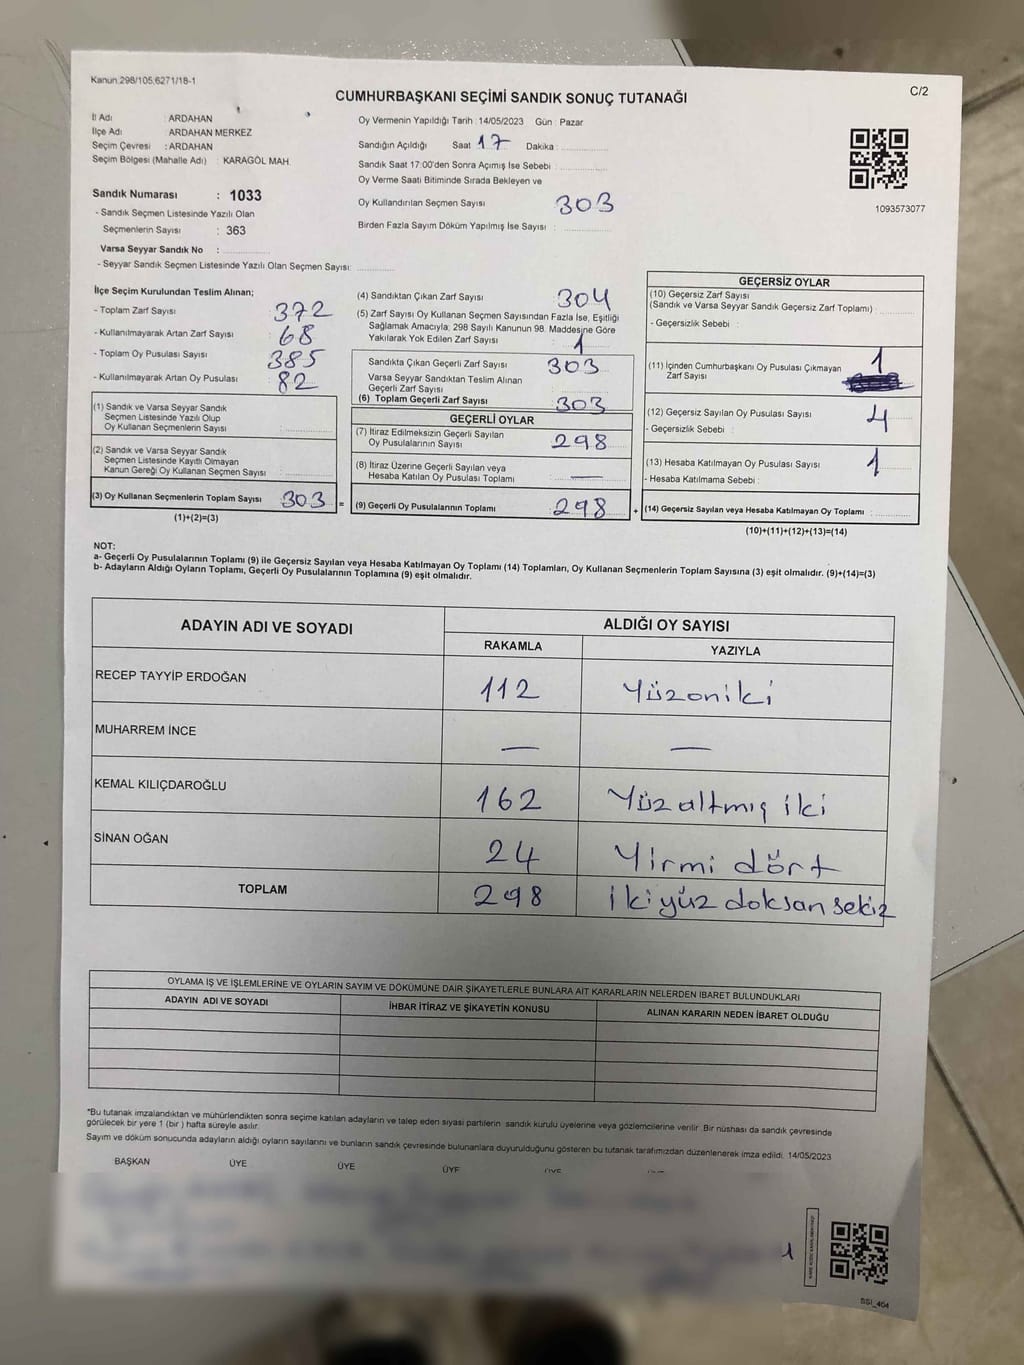 Kanun 298/105,6271/18-1
CUMHURBAŞKANI SEÇİMİ SANDIK SONUÇ TUTANAĞI
C/2
İl Adı : ARDAHAN
İlçe Adı : ARDAHAN MERKEZ
Seçim Çevresi : ARDAHAN
Seçim Bölgesi (Mahalle Adı) : KARAGÖL MAH.
Oy Vermenin Yapıldığı Tarih : 14/05/2023 Gün : Pazar
Sandığın Açıldığı Saat 17 Dakika :
Sandık Saat 17:00'den Sonra Açımış İse Sebebi :
Oy Verme Saati Bitiminde Sırada Bekleyen ve
Oy Kullandırılan Seçmen Sayısı 303
Birden Fazla Sayım Döküm Yapılmış İse Sayısı :
1093573077
Sandık Numarası : 1033
- Sandık Seçmen Listesinde Yazılı Olan
Seçmenlerin Sayısı : 363
Varsa Seyyar Sandık No :
- Seyyar Sandık Seçmen Listesinde Yazılı Olan Seçmen Sayısı:
İlçe Seçim Kurulundan Teslim Alınan;
- Toplam Zarf Sayısı 372
- Kullanılmayarak Artan Zarf Sayısı 68
- Toplam Oy Pusulası Sayısı 385
- Kullanılmayarak Artan Oy Pusulası 82
(1) Sandık ve Varsa Seyyar Sandık
Seçmen Listesinde Yazılı Olup
Oy Kullanan Seçmenlerin Sayısı
(2) Sandık ve Varsa Seyyar Sandık
Seçmen Listesinde Kayıtlı Olmayan
Kanun Gereği Oy Kullanan Seçmen Sayısı
(3) Oy Kullanan Seçmenlerin Toplam Sayısı 303 =
(1)+(2)=(3)
(4) Sandıktan Çıkan Zarf Sayısı 304
(5) Zarf Sayısı Oy Kullanan Seçmen Sayısından Fazla İse, Eşitliği
Sağlamak Amacıyla; 298 Sayılı Kanunun 98. Maddesine Göre
Yakılarak Yok Edilen Zarf Sayısı : 1
Sandıkta Çıkan Geçerli Zarf Sayısı 303
Varsa Seyyar Sandıktan Teslim Alınan
Geçerli Zarf Sayısı
(6) Toplam Geçerli Zarf Sayısı 303
GEÇERLİ OYLAR
(7) İtiraz Edilmeksizin Geçerli Sayılan
Oy Pusulalarının Sayısı 298
(8) İtiraz Üzerine Geçerli Sayılan veya
Hesaba Katılan Oy Pusulası Toplamı —
(9) Geçerli Oy Pusulalarının Toplamı 298 +
GEÇERSİZ OYLAR
(10) Geçersiz Zarf Sayısı
(Sandık ve Varsa Seyyar Sandık Geçersiz Zarf Toplamı) :
- Geçersizlik Sebebi :
(11) İçinden Cumhurbaşkanı Oy Pusulası Çıkmayan
Zarf Sayısı 1
(12) Geçersiz Sayılan Oy Pusulası Sayısı 4
- Geçersizlik Sebebi :
(13) Hesaba Katılmayan Oy Pusulası Sayısı : 1
- Hesaba Katılmama Sebebi :
(14) Geçersiz Sayılan veya Hesaba Katılmayan Oy Toplamı :
(10)+(11)+(12)+(13)=(14)
NOT:
a- Geçerli Oy Pusulalarının Toplamı (9) ile Geçersiz Sayılan veya Hesaba Katılmayan Oy Toplamı (14) Toplamları, Oy Kullanan Seçmenlerin Toplam Sayısına (3) eşit olmalıdır. (9)+(14)=(3)
b- Adayların Aldığı Oyların Toplamı, Geçerli Oy Pusulalarının Toplamına (9) eşit olmalıdır.
ADAYIN ADI VE SOYADI ALDIĞI OY SAYISI
RAKAMLA YAZIYLA
RECEP TAYYİP ERDOĞAN 112 Yüzoniki
MUHARREM İNCE — —
KEMAL KILIÇDAROĞLU 162 Yüzaltmış iki
SİNAN OĞAN 24 Yirmi dört
TOPLAM 298 ikiyüz doksan sekiz
OYLAMA İŞ VE İŞLEMLERİNE VE OYLARIN SAYIM VE DÖKÜMÜNE DAİR ŞİKAYETLERLE BUNLARA AİT KARARLARIN NELERDEN İBARET BULUNDUKLARI
ADAYIN ADI VE SOYADI İHBAR İTİRAZ VE ŞİKAYETİN KONUSU ALINAN KARARIN NEDEN İBARET OLDUĞU
*Bu tutanak imzalandıktan ve mühürlendikten sonra seçime katılan adayların ve talep eden siyasi partilerin sandık kurulu üyelerine veya gözlemcilerine verilir. Bir nüshası da sandık çevresinde
görülecek bir yere 1 (bir) hafta süreyle asılır.
Sayım ve döküm sonucunda adayların aldığı oyların sayılarını ve bunların sandık çevresinde bulunanlara duyurulduğunu gösteren bu tutanak tarafımızdan düzenlenerek imza edildi. 14/05/2023
BAŞKAN ÜYE ÜYE ÜYE ÜYE